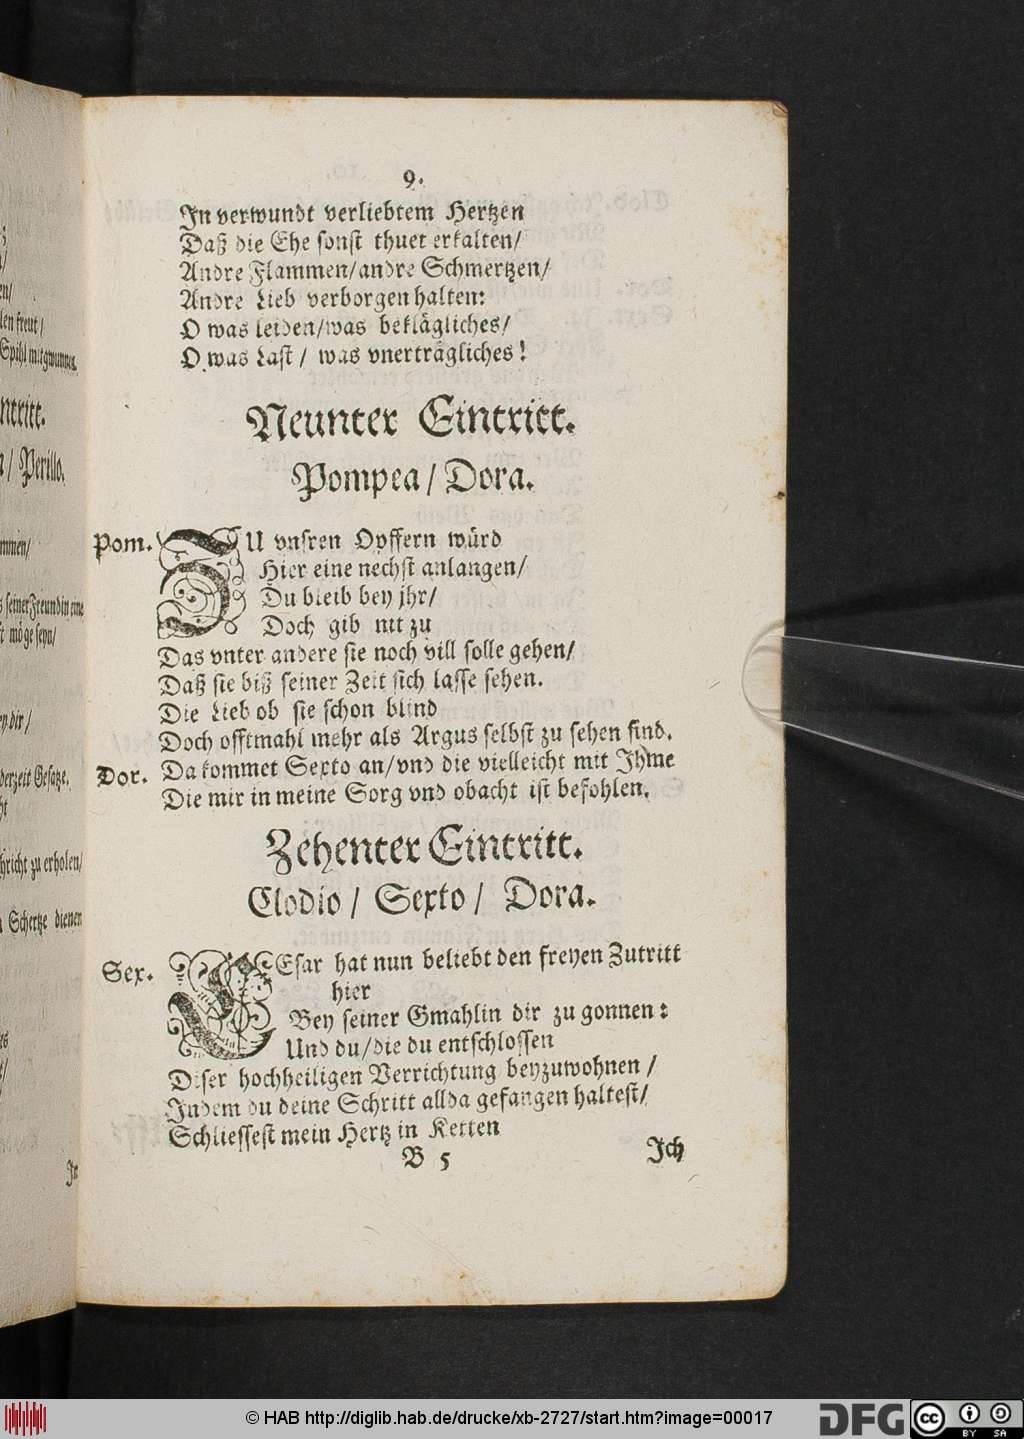 9.
In verwundt verliebtem Hertzen
Daß die Ehe sonst thuet erkalten/
Andre Flammen/andre Schmertzen/
Andre Lieb verborgen halten:
O was leiden/was beklägliches/
O was Last / was vnerträgliches!
Neunter Eintritt.
Pompea / Dora.
Pom. ZU vnsren Opffern würd
Hier eine nechst anlangen/
Du bleib bey jhr/
Doch gib nit zu
Das vnter andere sie noch vill solle gehen/
Daß sie biß seiner Zeit sich lasse sehen.
Die Lieb ob sie schon blind
Doch offtmahl mehr als Argus selbst zu sehen find.
Dor. Da kommet Sexto an/vnd die vielleicht mit Ihme
Die mir in meine Sorg vnd obacht ist befohlen.
Zehenter Eintritt.
Clodio / Sexto / Dora.
Sex. CEsar hat nun beliebt den freyen Zutritt
hier
Bey seiner Gmahlin dir zu gonnen:
Und du/die du entschlossen
Diser hochheiligen Verrichtung beyzuwohnen /
Indem du deine Schritt allda gefangen haltest/
Schliessest mein Hertz in Ketten
B 5 Ich
len freut /
Spihl mitgwunnen.
ntritt.
/ Perillo.
mmen/
s seiner Freundin eine
st möge seyn/
ey dir /
derzeit Gesätze.
hricht zu erholen/
Schertze dienen
In
© HAB http://diglib.hab.de/drucke/xb-2727/start.htm?image=00017
DFG
cc BY SA